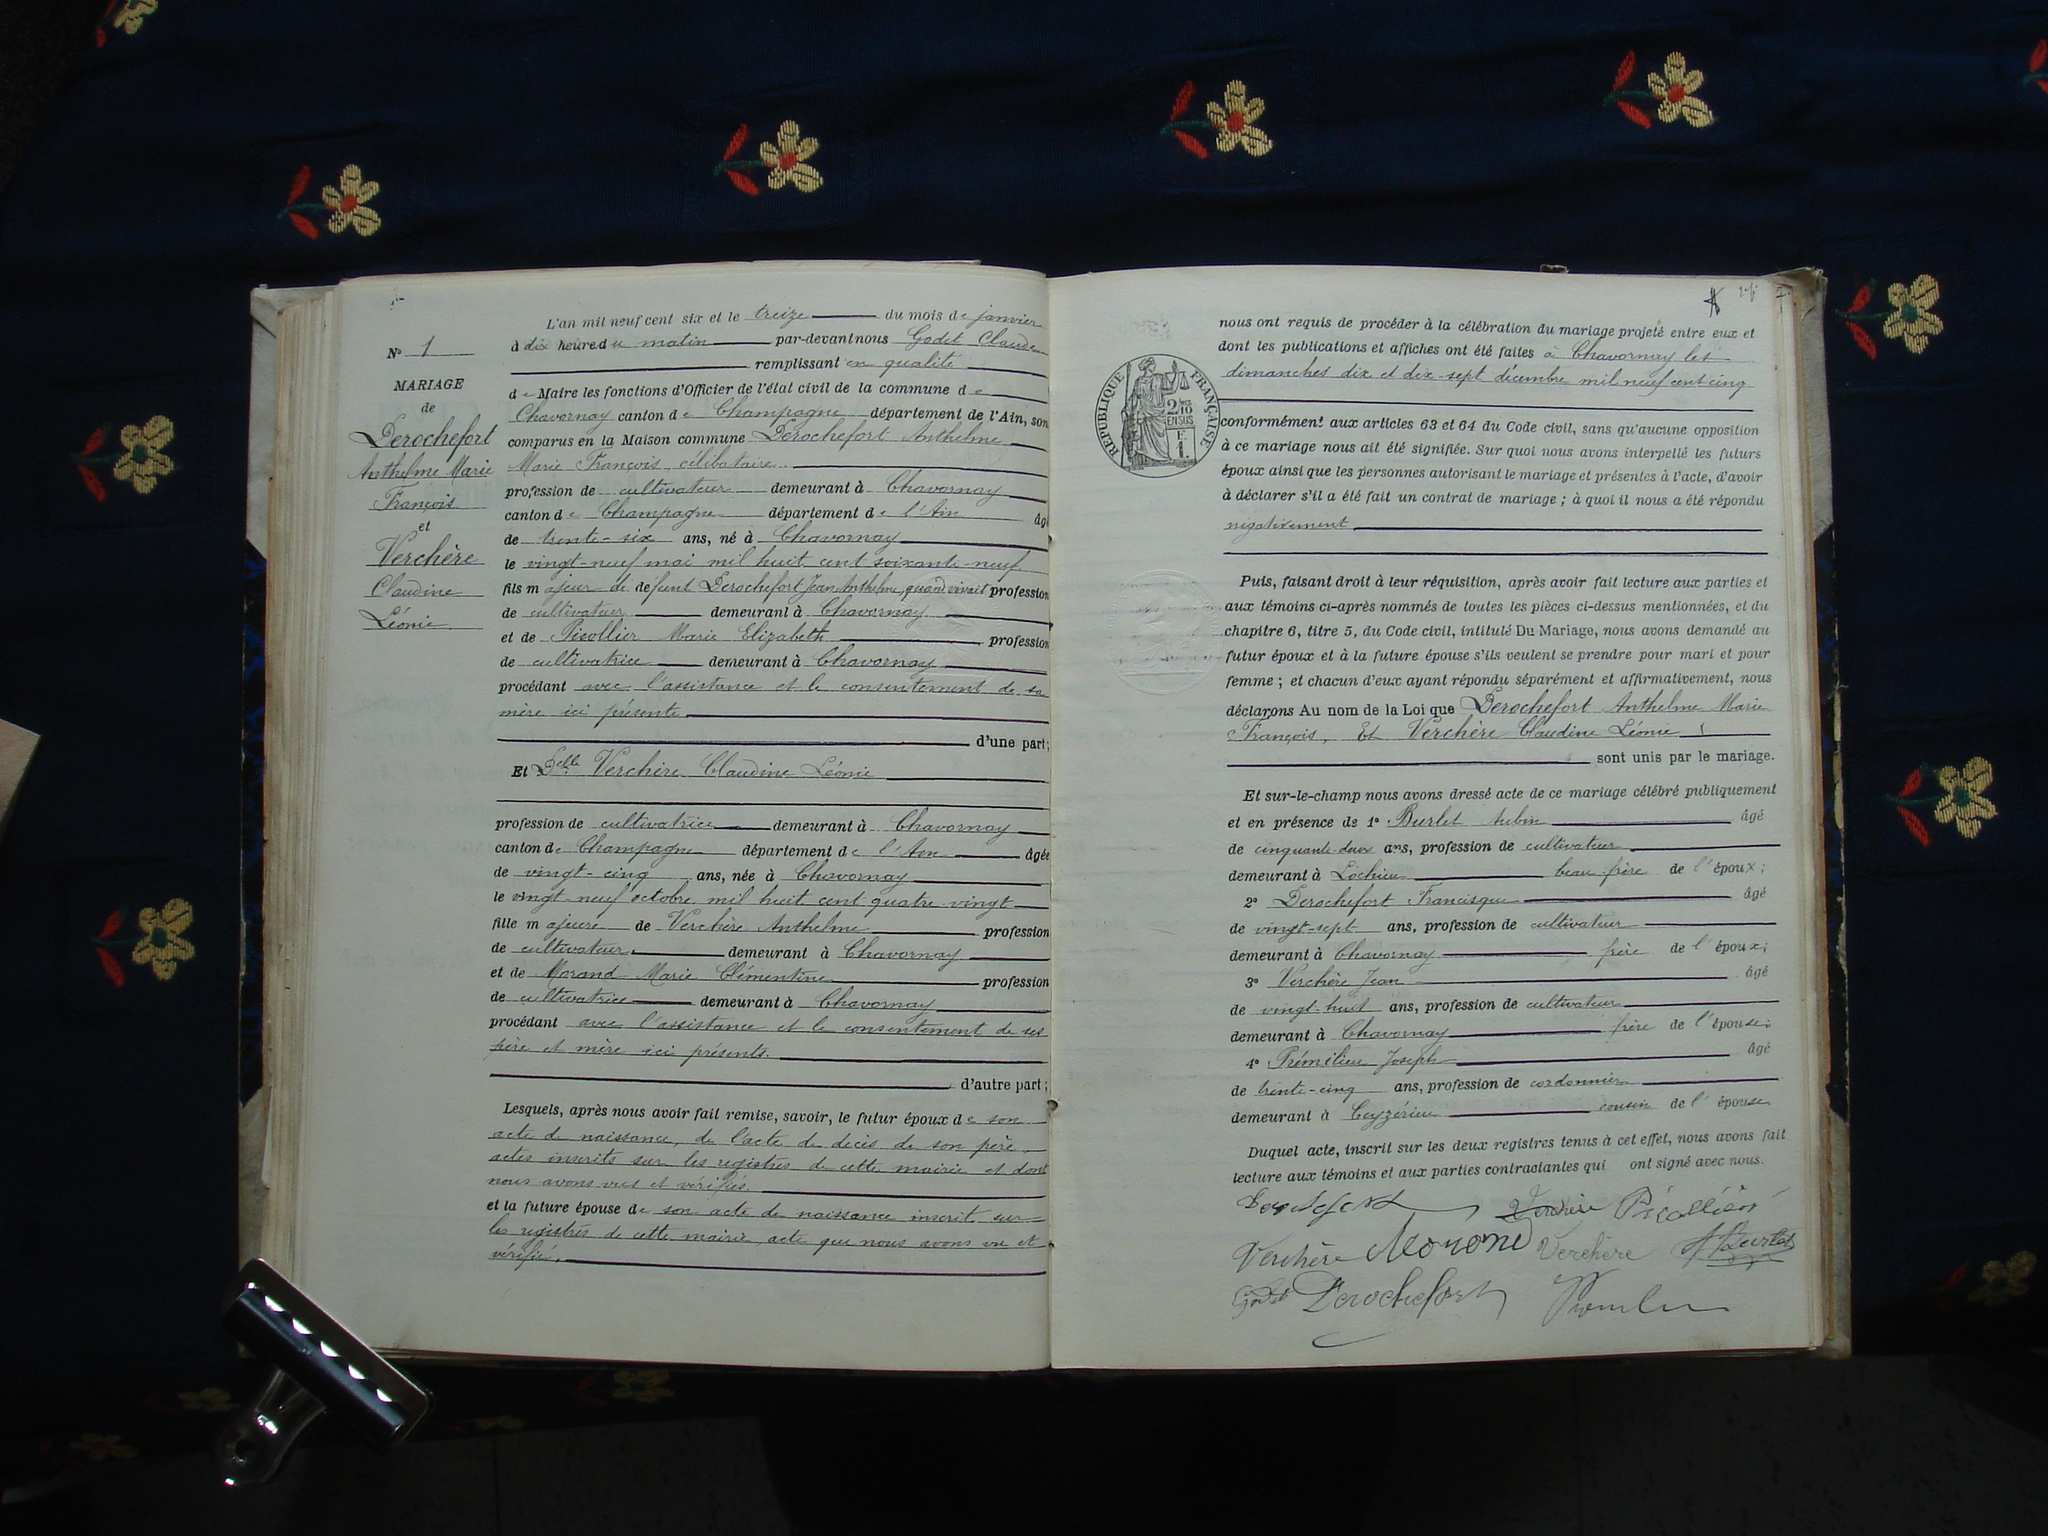 L'an mil neuf cent six et le treize du mois de janvier
à dix heure du matin par-devant nous Godet Claude
remplissant en qualité
de Maire les fonctions d'Officier de l'état civil de la commune de
Chavornay canton de Champagne département de l'Ain, sont
comparus en la Maison commune Derochefort Anthelme
Marie François, célibataire
profession de cultivateur demeurant à Chavornay
canton de Champagne département de l'Ain âgé
de trente-six ans, né à Chavornay
le vingt-neuf mai mil huit cent soixante-neuf
fils majeur de défunt Derochefort Jean Anthelme, quand vivait profession
de cultivateur demeurant à Chavornay
et de Picollier Marie Elizabeth profession
de cultivatrice demeurant à Chavornay
procédant avec l'assistance et le consentement de sa
mère ici présente
d'une part;
Et Delle Verchère Claudine Léonie
profession de cultivatrice demeurant à Chavornay
canton de Champagne département de l'Ain âgée
de vingt-cinq ans, née à Chavornay
le vingt-neuf octobre mil huit cent quatre vingt
fille majeure de Verchère Anthelme profession
de cultivateur demeurant à Chavornay
et de Morand Marie Clémentine profession
de cultivatrice demeurant à Chavornay
procédant avec l'assistance et le consentement de ses
père et mère ici présents.
d'autre part;
Lesquels, après nous avoir fait remise, savoir, le futur époux de son
acte de naissance, de l'acte de décès de son père,
actes inscrits sur les registres de cette mairie et dont
nous avons vus et vérifiés.
et la future épouse de son acte de naissance inscrit sur
les registres de cette mairie, acte que nous avons vu et
vérifié.
No 1
MARIAGE
de
Derochefort
Anthelme Marie
François
et
Verchère
Claudine
Léonie
nous ont requis de procéder à la célébration du mariage projeté entre eux et
dont les publications et affiches ont été faites à Chavornay les
dimanches dix et dix-sept décembre mil neuf cent cinq
RÉPUBLIQUE FRANÇAISE
2/10
EN SUS
conformément aux articles 63 et 64 du Code civil, sans qu'aucune opposition
à ce mariage nous ait été signifiée. Sur quoi nous avons interpellé les futurs
époux ainsi que les personnes autorisant le mariage et présentes à l'acte, d'avoir
à déclarer s'il a été fait un contrat de mariage; à quoi il nous a été répondu
négativement
Puis, faisant droit à leur réquisition, après avoir fait lecture aux parties et
aux témoins ci-après nommés de toutes les pièces ci-dessus mentionnées, et du
chapitre 6, titre 5, du Code civil, intitulé Du Mariage, nous avons demandé au
futur époux et à la future épouse s'ils veulent se prendre pour mari et pour
femme; et chacun d'eux ayant répondu séparément et affirmativement, nous
déclarons Au nom de la Loi que Derochefort Anthelme Marie
François, Et Verchère Claudine Léonie
sont unis par le mariage.
Et sur-le-champ nous avons dressé acte de ce mariage célébré publiquement
et en présence de 1° Burlet Aubin âgé
de cinquante-deux ans, profession de cultivateur
demeurant à Lochieu beau-frère de l'époux;
2° Derochefort Francisque âgé
de vingt-sept ans, profession de cultivateur
demeurant à Chavornay frère de l'époux;
3° Verchère Jean âgé
de vingt-huit ans, profession de cultivateur
demeurant à Chavornay frère de l'épouse;
4° Prémilieu Joseph âgé
de trente-cinq ans, profession de cordonnier
demeurant à Ceyzérieu cousin de l'épouse
Duquel acte, inscrit sur les deux registres tenus à cet effet, nous avons fait
lecture aux témoins et aux parties contractantes qui ont signé avec nous.
Verchère Picollier
Verchère Morand Verchère A Burlet
Godet Derochefort